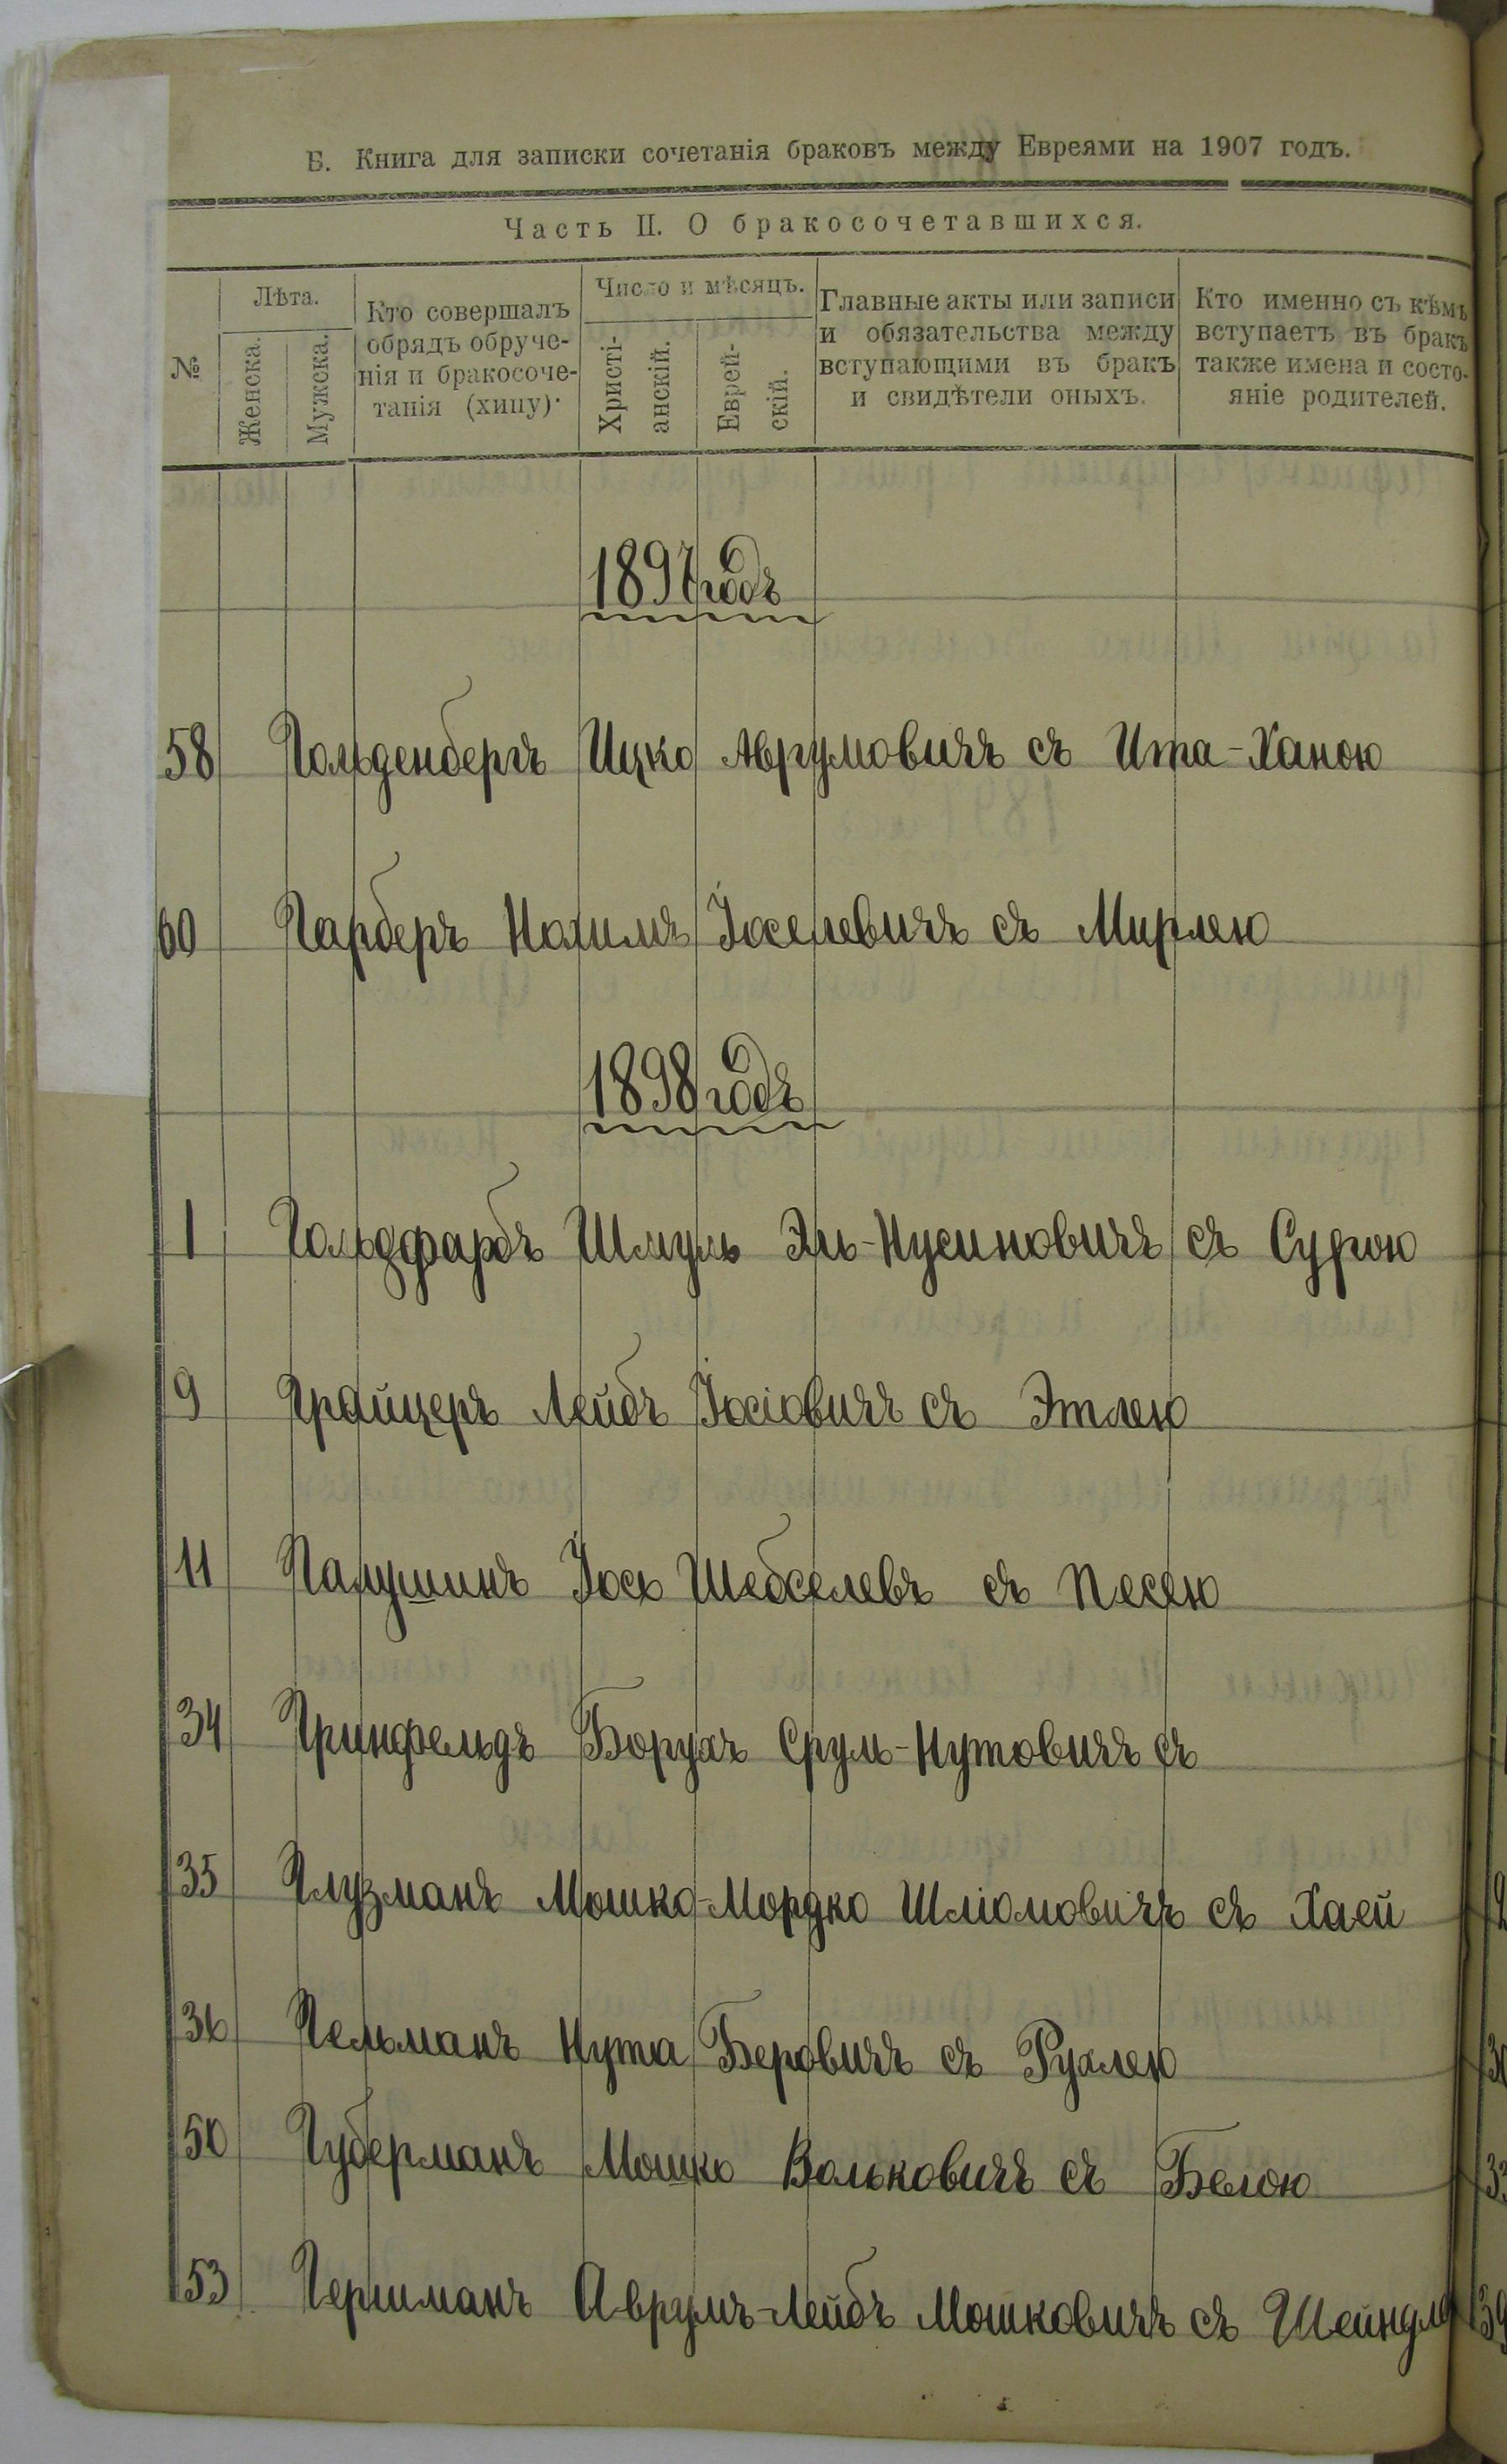 Б. Книга для записки сочетанія браковъ между Евреями на 1907 годъ.
Часть II. О бракосочетавшихся.
№
Лѣта.
Женска.
Мужска.
Кто совершалъ
обрядъ обруче-
нія и бракосоче-
танія (хипу).
Число и мѣсяцъ.
Христі-
анскій.
Еврей-
скій.
Главные акты или записи
и обязательства между
вступающими въ бракъ
и свидѣтели оныхъ.
Кто именно съ кѣмъ
вступаетъ въ бракъ
также имена и состо-
яніе родителей.
1897 годъ
58 Гольденбергъ Ицко Аврумовичъ съ Ита-Ханою
60 Гарберъ Нахимъ Іоселевичъ съ Мирлею
1898 годъ
1 Гольдфарбъ Шмуль Эль-Нусиновичъ съ Сурою
9 Грайцеръ Лейбъ Іосіовичъ съ Этлею
11 Галушинъ Іось Шебселевъ съ Песею
34 Гринфельдъ Борухъ Срул-Нутовичъ съ
35 Глузманъ Мошко-Мордко Шліомовичъ съ Хаей
36 Гельманъ Нута Беровичъ съ Рухлею
50 Губерманъ Мошко Вольковичъ съ Белою
53 Гершманъ Аврумъ-Лейбъ Мошковичъ съ